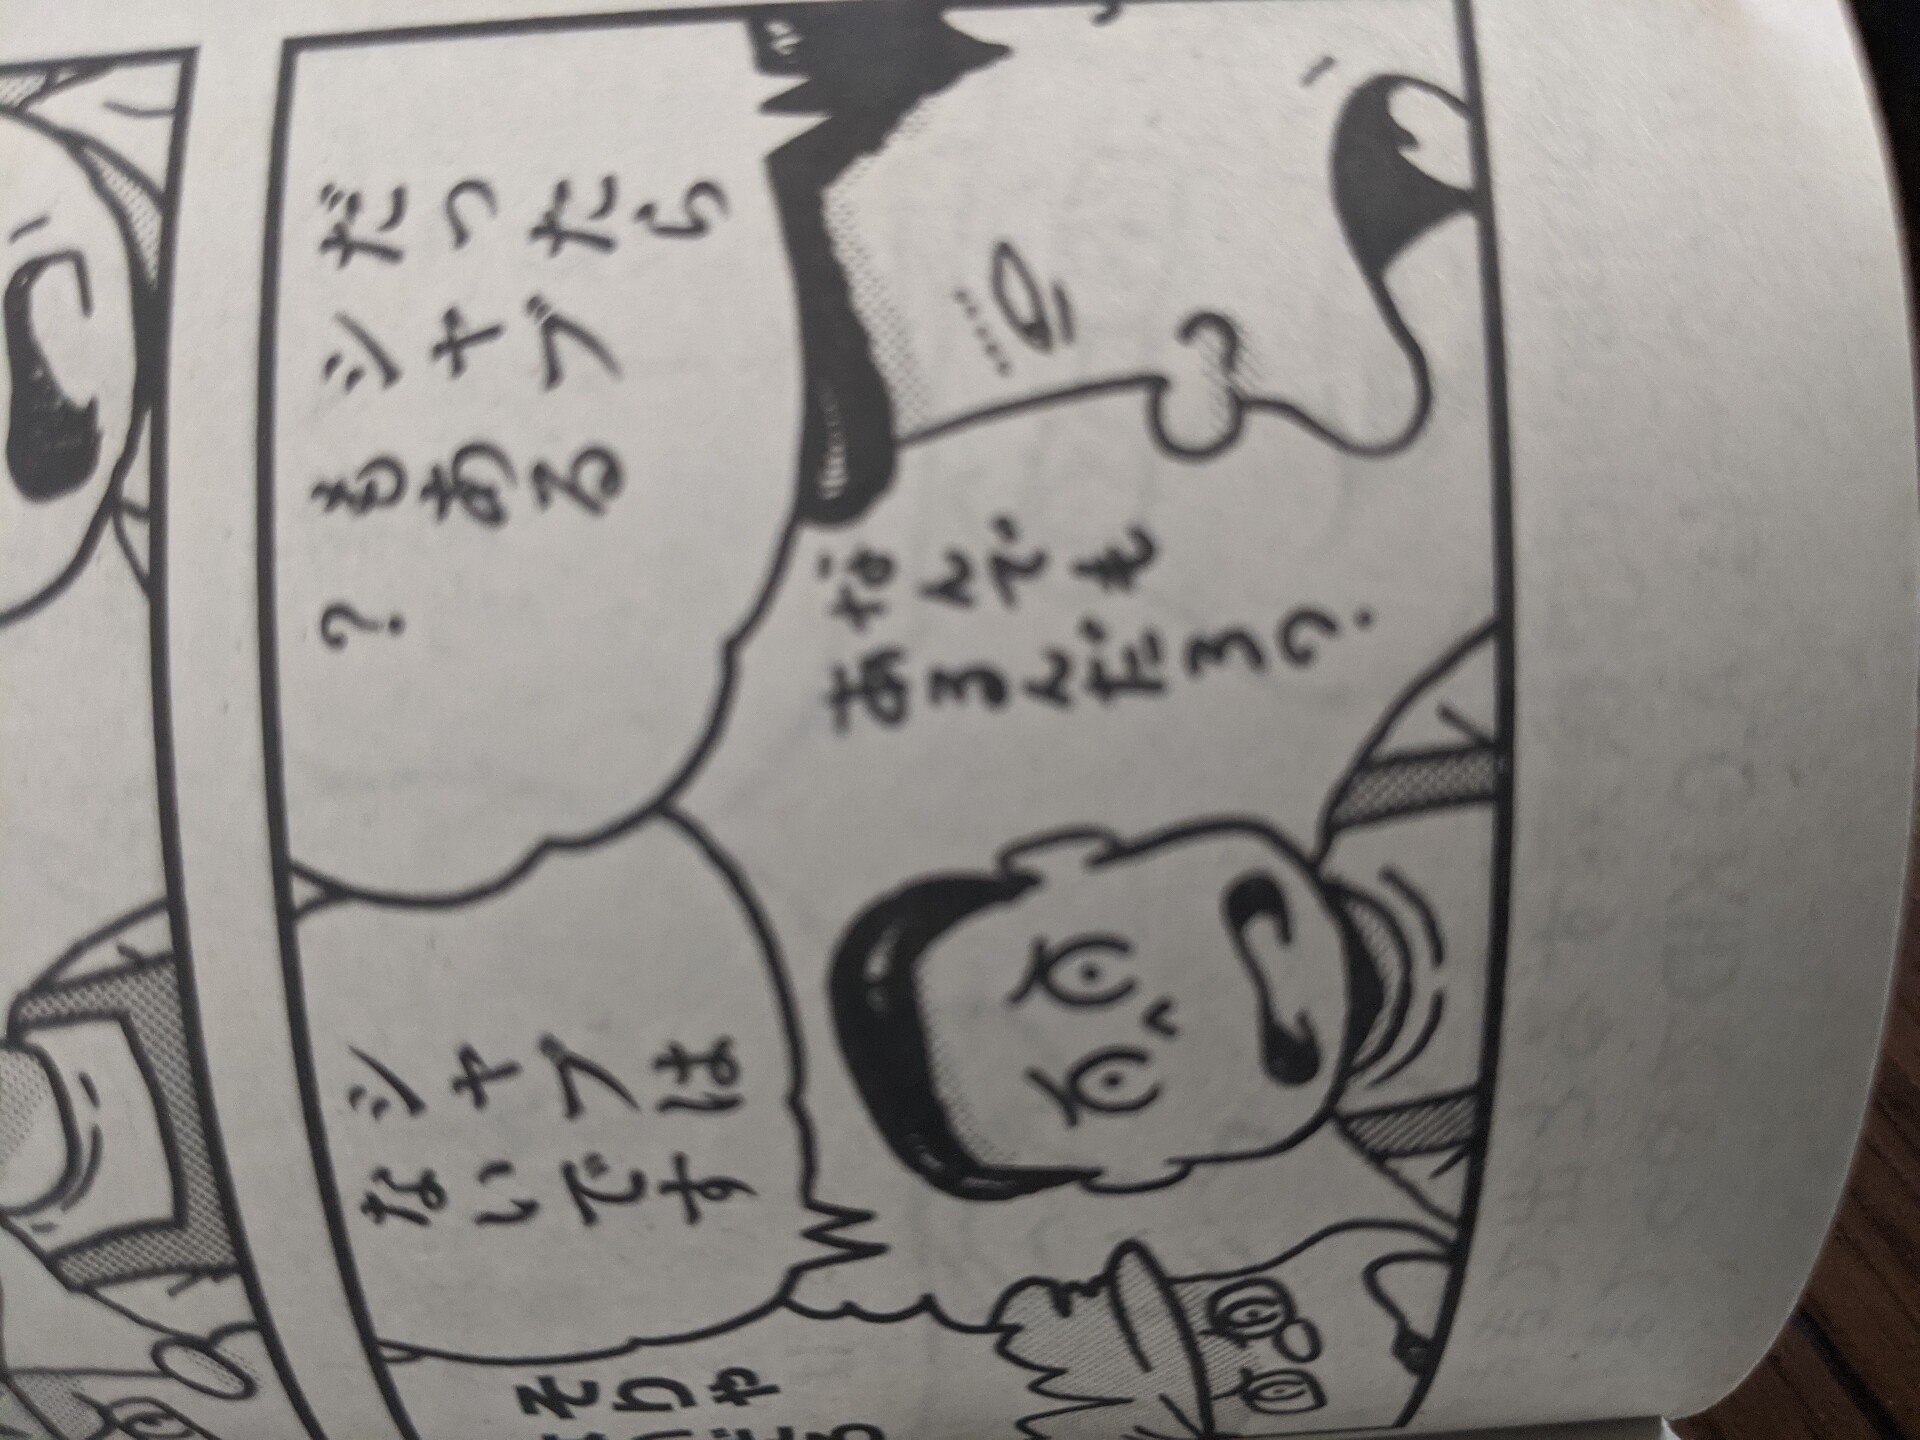 だったら
シャブ
もある
?
なんでも
あるんだろ?
シャブは
ないです
そりゃ